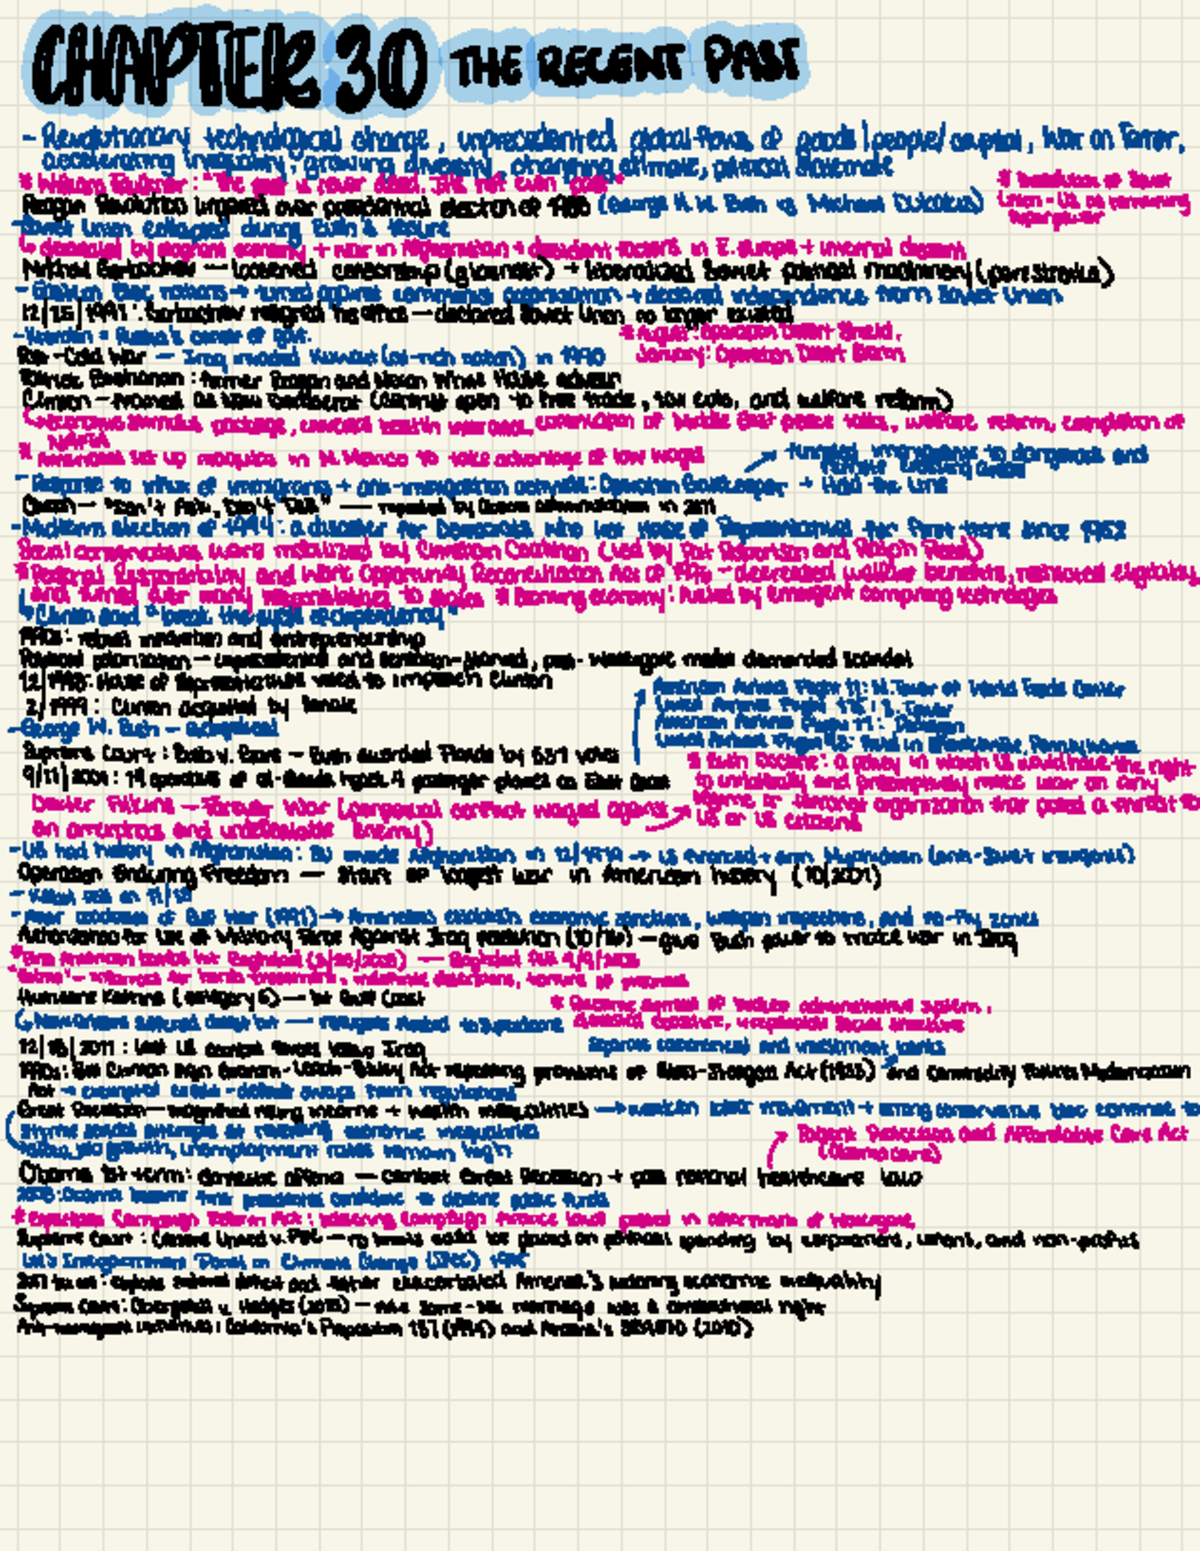 CHAPTER 30 THE RECENT PAST
- Revolutionary technological change, unprecedented global flows of goods/people/capital, War on Terror,
accelerating inequality, growing diversity, changing climate, political stalemate
* William Faulkner: "The past is never dead. It's not even past"
* Dissolution of Soviet
Union - US as remaining
superpower
Reagan Revolution lingered over presidential election of 1988 (George H. W. Bush vs Michael Dukakis)
- Soviet Union collapsed during Bush's tenure
↳ devoured by stagnant economy + war in Afghanistan + dissident in E. Europe + internal dissent
Mikhail Gorbachev — loosened censorship (glasnost) + liberalized Soviet political machinery (perestroika)
- nations → turned against communist organization → declared independence from Soviet Union
12/25/1991: Gorbachev resigned his office — declared Soviet Union no longer existed
- Kremlin = Russia's center of govt.
* August: Operation Desert Shield,
January: Operation Desert Storm
Post-Cold War — Iraq invaded Kuwait (oil-rich nation) in 1990
Patrick Buchanan: former Reagan and Nixon White House advisor
Clinton — New Democrat (open to free trade, tax cuts, and welfare reform)
↳ economic stimulus package, universal health insurance, continuation of Middle East peace talks, welfare reform, completion of
NAFTA
* Americans set up maquilas in N. Mexico to take advantage of low wages
→ funneled immigrants to dangerous and
remote crossing areas
- Response to influx of immigrants + anti-immigration activists: Operation Gatekeeper + Hold the Line
Clinton — "Don't Ask, Don't Tell" — repealed by Obama administration in 2011
- Midterm election of 1994: a disaster for Democrats who lost House of Representatives for first time since 1952
Social conservatives were mobilized by Christian Coalition (led by Pat Robertson and Ralph Reed)
* Personal Responsibility and Work Opportunity Reconciliation Act of 1996 - decreased welfare benefits, restricted eligibility,
and turned over many responsibilities to states * Booming economy: fueled by emergent computing technologies
↳ Clinton said "break the cycle of dependency"
1990s: robust innovation and entrepreneurship
Political polarization — and post-Watergate media demanded scandal
12/1998: House of Representatives voted to impeach Clinton
2/1999: Clinton acquitted by Senate
American Airlines Flight 11: N. Tower of World Trade Center
United Airlines Flight 175: S. Tower
American Airlines Flight 77: Pentagon
United Airlines Flight 93: field in Pennsylvania
- George W. Bush —
Supreme Court: Bush v. Gore — Bush awarded Florida by 537 votes
* Bush Doctrine: a policy in which US would have the right
to unilaterally and preemptively make war on any
regime or terrorist organization that posed a threat to
US or US citizens
9/11/2001: 19 operatives of al-Qaeda hijack 4 passenger planes on East Coast
Dexter Filkins — Forever War (perpetual conflict waged against
an amorphous and undefeatable enemy)
- US had history in Afghanistan: SU invade Afghanistan in 12/1979 → US financed + arm Mujahideen (anti-Soviet insurgents)
Operation Enduring Freedom — start of longest war in American history (10/2001)
- Kabul fell on 11/13
- After conclusion of Gulf War (1991) → Americans establish economic sanctions, weapon inspections, and no-fly zones
Authorization for Use of Military Force Against Iraq resolution (10/16) — give Bush power to make war in Iraq
* First American bombs hit Baghdad (3/20/2003) — Baghdad fell 4/9/2003
indefinite detentions, torture of prisoners
Hurricane Katrina (category 5) — hit Gulf Coast
↳ New Orleans suffered — refugees moved to Superdome
12/18/2011: last US combat forces leave Iraq
Separate commercial and investment banks
1990s: Bill Clinton sign Gramm-Leach-Bliley Act repealing provisions of Glass-Steagall Act (1933) and Commodity Futures Modernization
Act → exempted credit-default swaps from regulations
Great Recession — magnified rising income + wealth inequalities → weaken labor movement + strong conservative
attempts at remedying economic inequalities
job growth, unemployment rates remain high
→ Patient Protection and Affordable Care Act
(Obamacare)
Obama 1st term: domestic affairs — combat Great Recession + pass national healthcare law
2008: Obama became first presidential candidate to decline public funds
* Campaign Reform Act: campaign finance laws passed in aftermath of Watergate
Supreme Court: Citizens United v. FEC — no limits could be placed on political spending by corporations, unions, and non-profits
Intergovernmental Panel on Climate Change (IPCC)
2017 tax cut: federal deficit and further exacerbated America's widening economic inequality
Supreme Court: Obergefell v. Hodges (2015) — same-sex marriage was a constitutional right
Anti-immigrant initiatives: California's Proposition 187 (1994) and Arizona's SB1070 (2010)